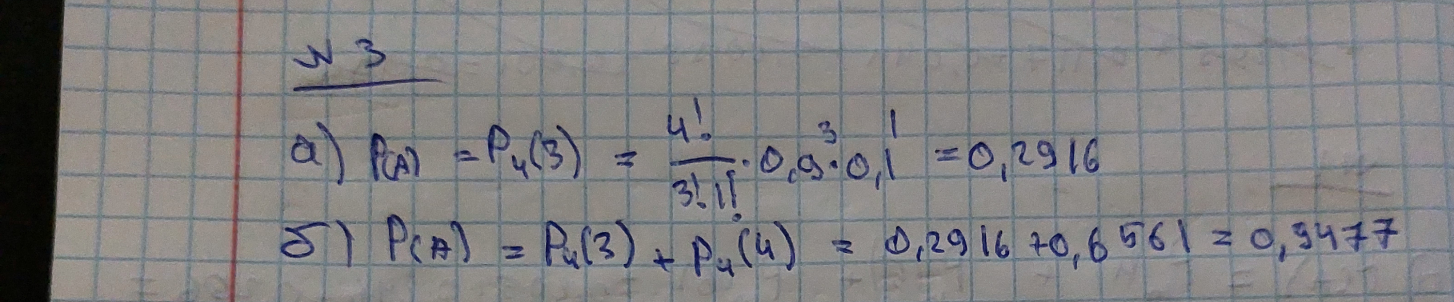 № 3
а) P(A) = P₄(3) = 4!/(3!1!) · 0,9³ · 0,1¹ = 0,2916
б) P(A) = P₄(3) + P₄(4) = 0,2916 + 0,6561 = 0,9477